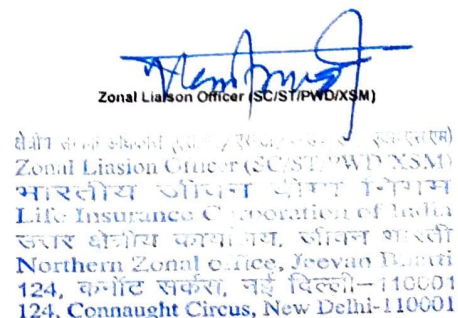 Zonal Liaison Officer (SC/ST/PWD/XSM)
Zonal Liasion Officer (SC/ST/PWD/XSM)
भारतीय जीवन बीमा निगम
Life Insurance Corporation of India
उत्तर क्षेत्रीय कार्यालय, जीवन भारती
Northern Zonal office, Jeevan Bharti
124, कनॉट सर्कस, नई दिल्ली–110001
124, Connaught Circus, New Delhi-110001